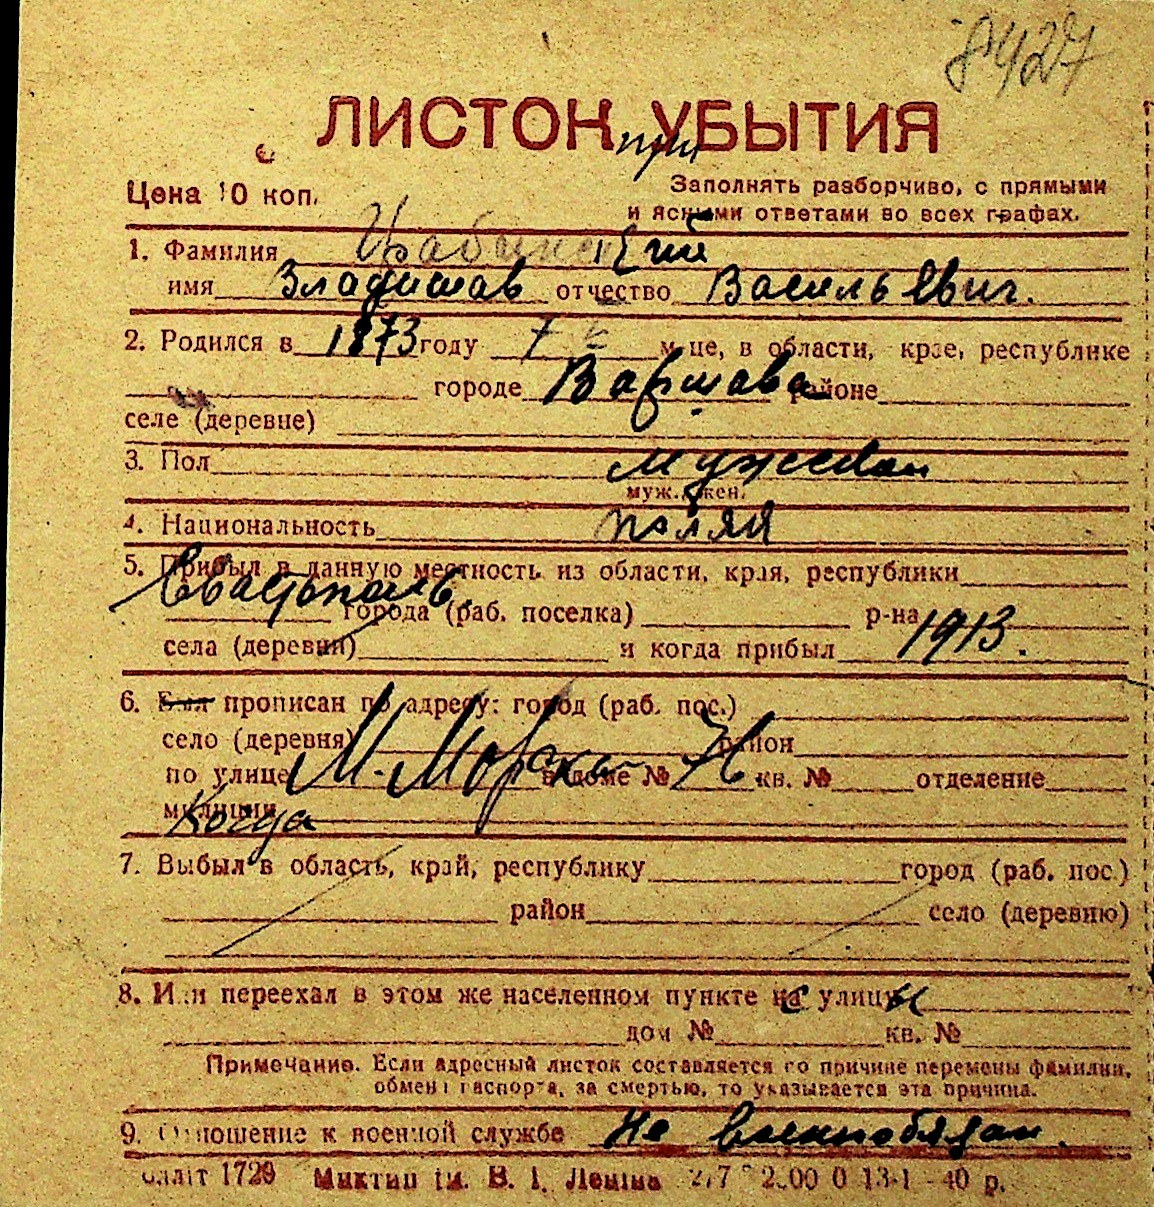 8427
ЛИСТОК при УБЫТИЯ
Цена 10 коп.
Заполнять разборчиво, с прямыми
и ясными ответами во всех графах.
1. Фамилия
имя Владислав отчество Васильевич.
2. Родился в 1873 году 7 м-це, в области, крае, республике
городе Варшава районе
селе (деревне)
3. Пол мужской
муж., жен.
4. Национальность поляк
5. Прибыл в данную местность из области, края, республики
Севастополь. города (раб. поселка) р-на
села (деревни) и когда прибыл 1913.
6. Был прописан по адресу: город (раб. пос.)
село (деревня) район
по улице М-Морская в доме № 76 кв. № отделение
милиции
7. Выбыл в область, край, республику город (раб. пос.)
район село (деревню)
8. Или переехал в этом же населенном пункте с улицы
дом № кв. №
Примечание. Если адресный листок составляется по причине перемены фамилии,
обмена паспорта, за смертью, то указывается эта причина.
9. Отношение к военной службе Не военнообязан.
1729 Миктип ім. В. І. Леніна 40 р.